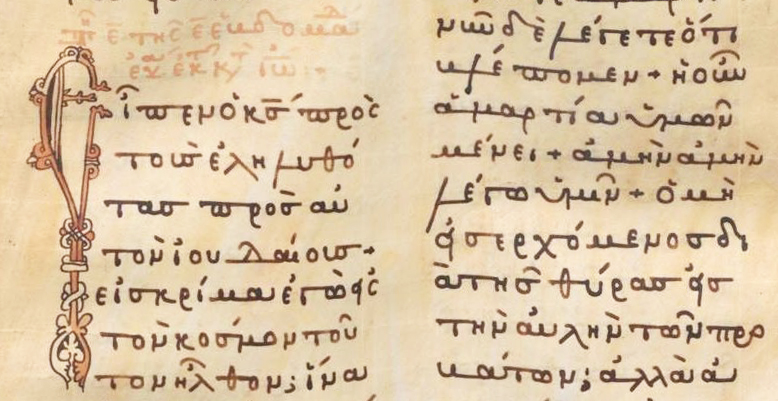 τῇ ε τῆς ε ἑβδομα
ἐκ τ κτ ἰω
Εἶπεν ὁ κς πρὸς
τοὺς ἐληλυθό
τας πρὸς αὐ
τὸν ἰουδαίους +
εἰς κρίμα ἐγὼ εἰς
τὸν κόσμον τοῦ
τον ἦλθον; ἵνα
νῦν δὲ λέγετε ὅτι
βλέπομεν + ἡ οὖν
ἁμαρτία ὑμῶν
μένει + ἀμὴν ἀμὴν
λέγω ὑμῖν + ὁ μὴ
εἰσερχόμενος δι
ὰ τῆς θύρας εἰς
τὴν αὐλὴν τῶν προ
βάτων; ἀλλὰ ἀ